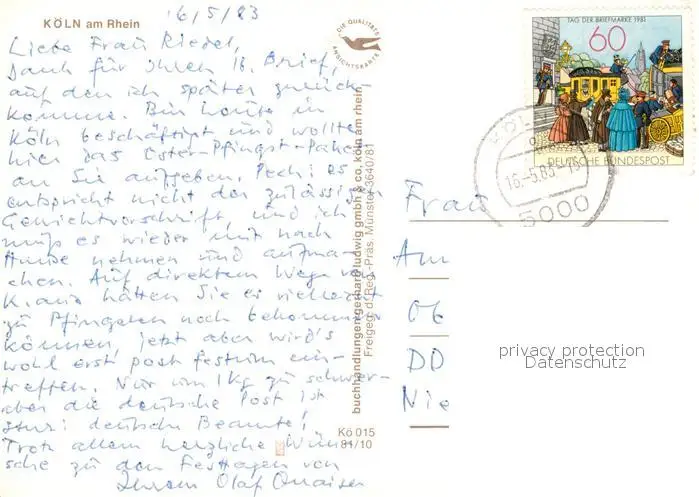 KÖLN am Rhein
16/5/83
Liebe Frau Riedel,
Dank für Ihren 16. Brief,
auf den ich später zurück-
komme. Bin heute in
Köln beschäftigt und wollte
hier das Oster-Pfingst-Paket
an Sie aufgeben. Pech: es
entspricht nicht der zulässigen
Gewichtvorschrift, und ich
muß es wieder mit nach
Hause nehmen und aufma-
chen. Auf direktem Wege von
K. aus hätten Sie es vielleicht
zu Pfingsten noch bekommen
können, jetzt aber wird's
wohl erst post festum ein-
treffen. Nur um 1kg zu schwer-
aber die deutsche Post ist
stur: deutsche Beamte!
Trotz allem herzliche Wün-
sche zu den Festtagen von
Ihrem Olaf
DIE QUALITÄTS
ANSICHTSKARTE
buchhandlungen gerhard ludwig gmbh & co, köln am rhein
Freigeg. d. Reg.-Präs. Münster 3640/81
Kö 015
81/10
TAG DER BRIEFMARKE 1981
60
DEUTSCHE BUNDESPOST
KÖL
16.-5.83
5000
Frau
Am
DD
Nie
privacy protection
Datenschutz